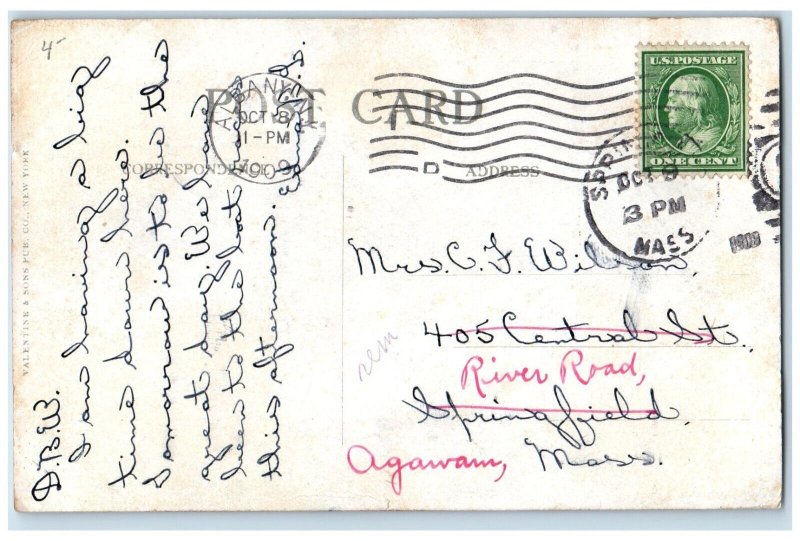 4-
POST CARD
CORRESPONDENCE
ADDRESS
VALENTINE & SONS PUB. CO., NEW YORK
ALBANY, N.Y.
OCT 8
1-PM
1909
D
U.S. POSTAGE
ONE CENT
SPRINGFIELD
OCT 9
3 PM
MASS
1909
D.B.W.
I am having a big
time down here.
Tomorrow is to be the
great day. We have
been to the boat races
this afternoon.
Mrs. C. F. Wilson,
405 Central St.
River Road,
Springfield,
Agawam, Mass.
rem